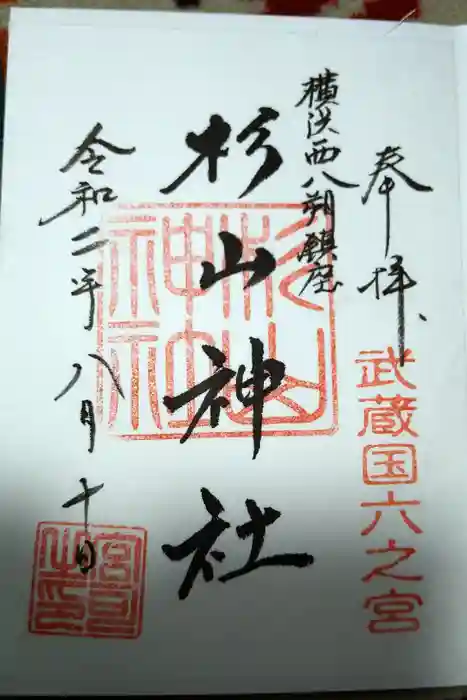 奉拝、
武蔵国六之宮
横浜西八朔鎮座
杉山神社
杉山神社
令和二年八月十日
宮司之印